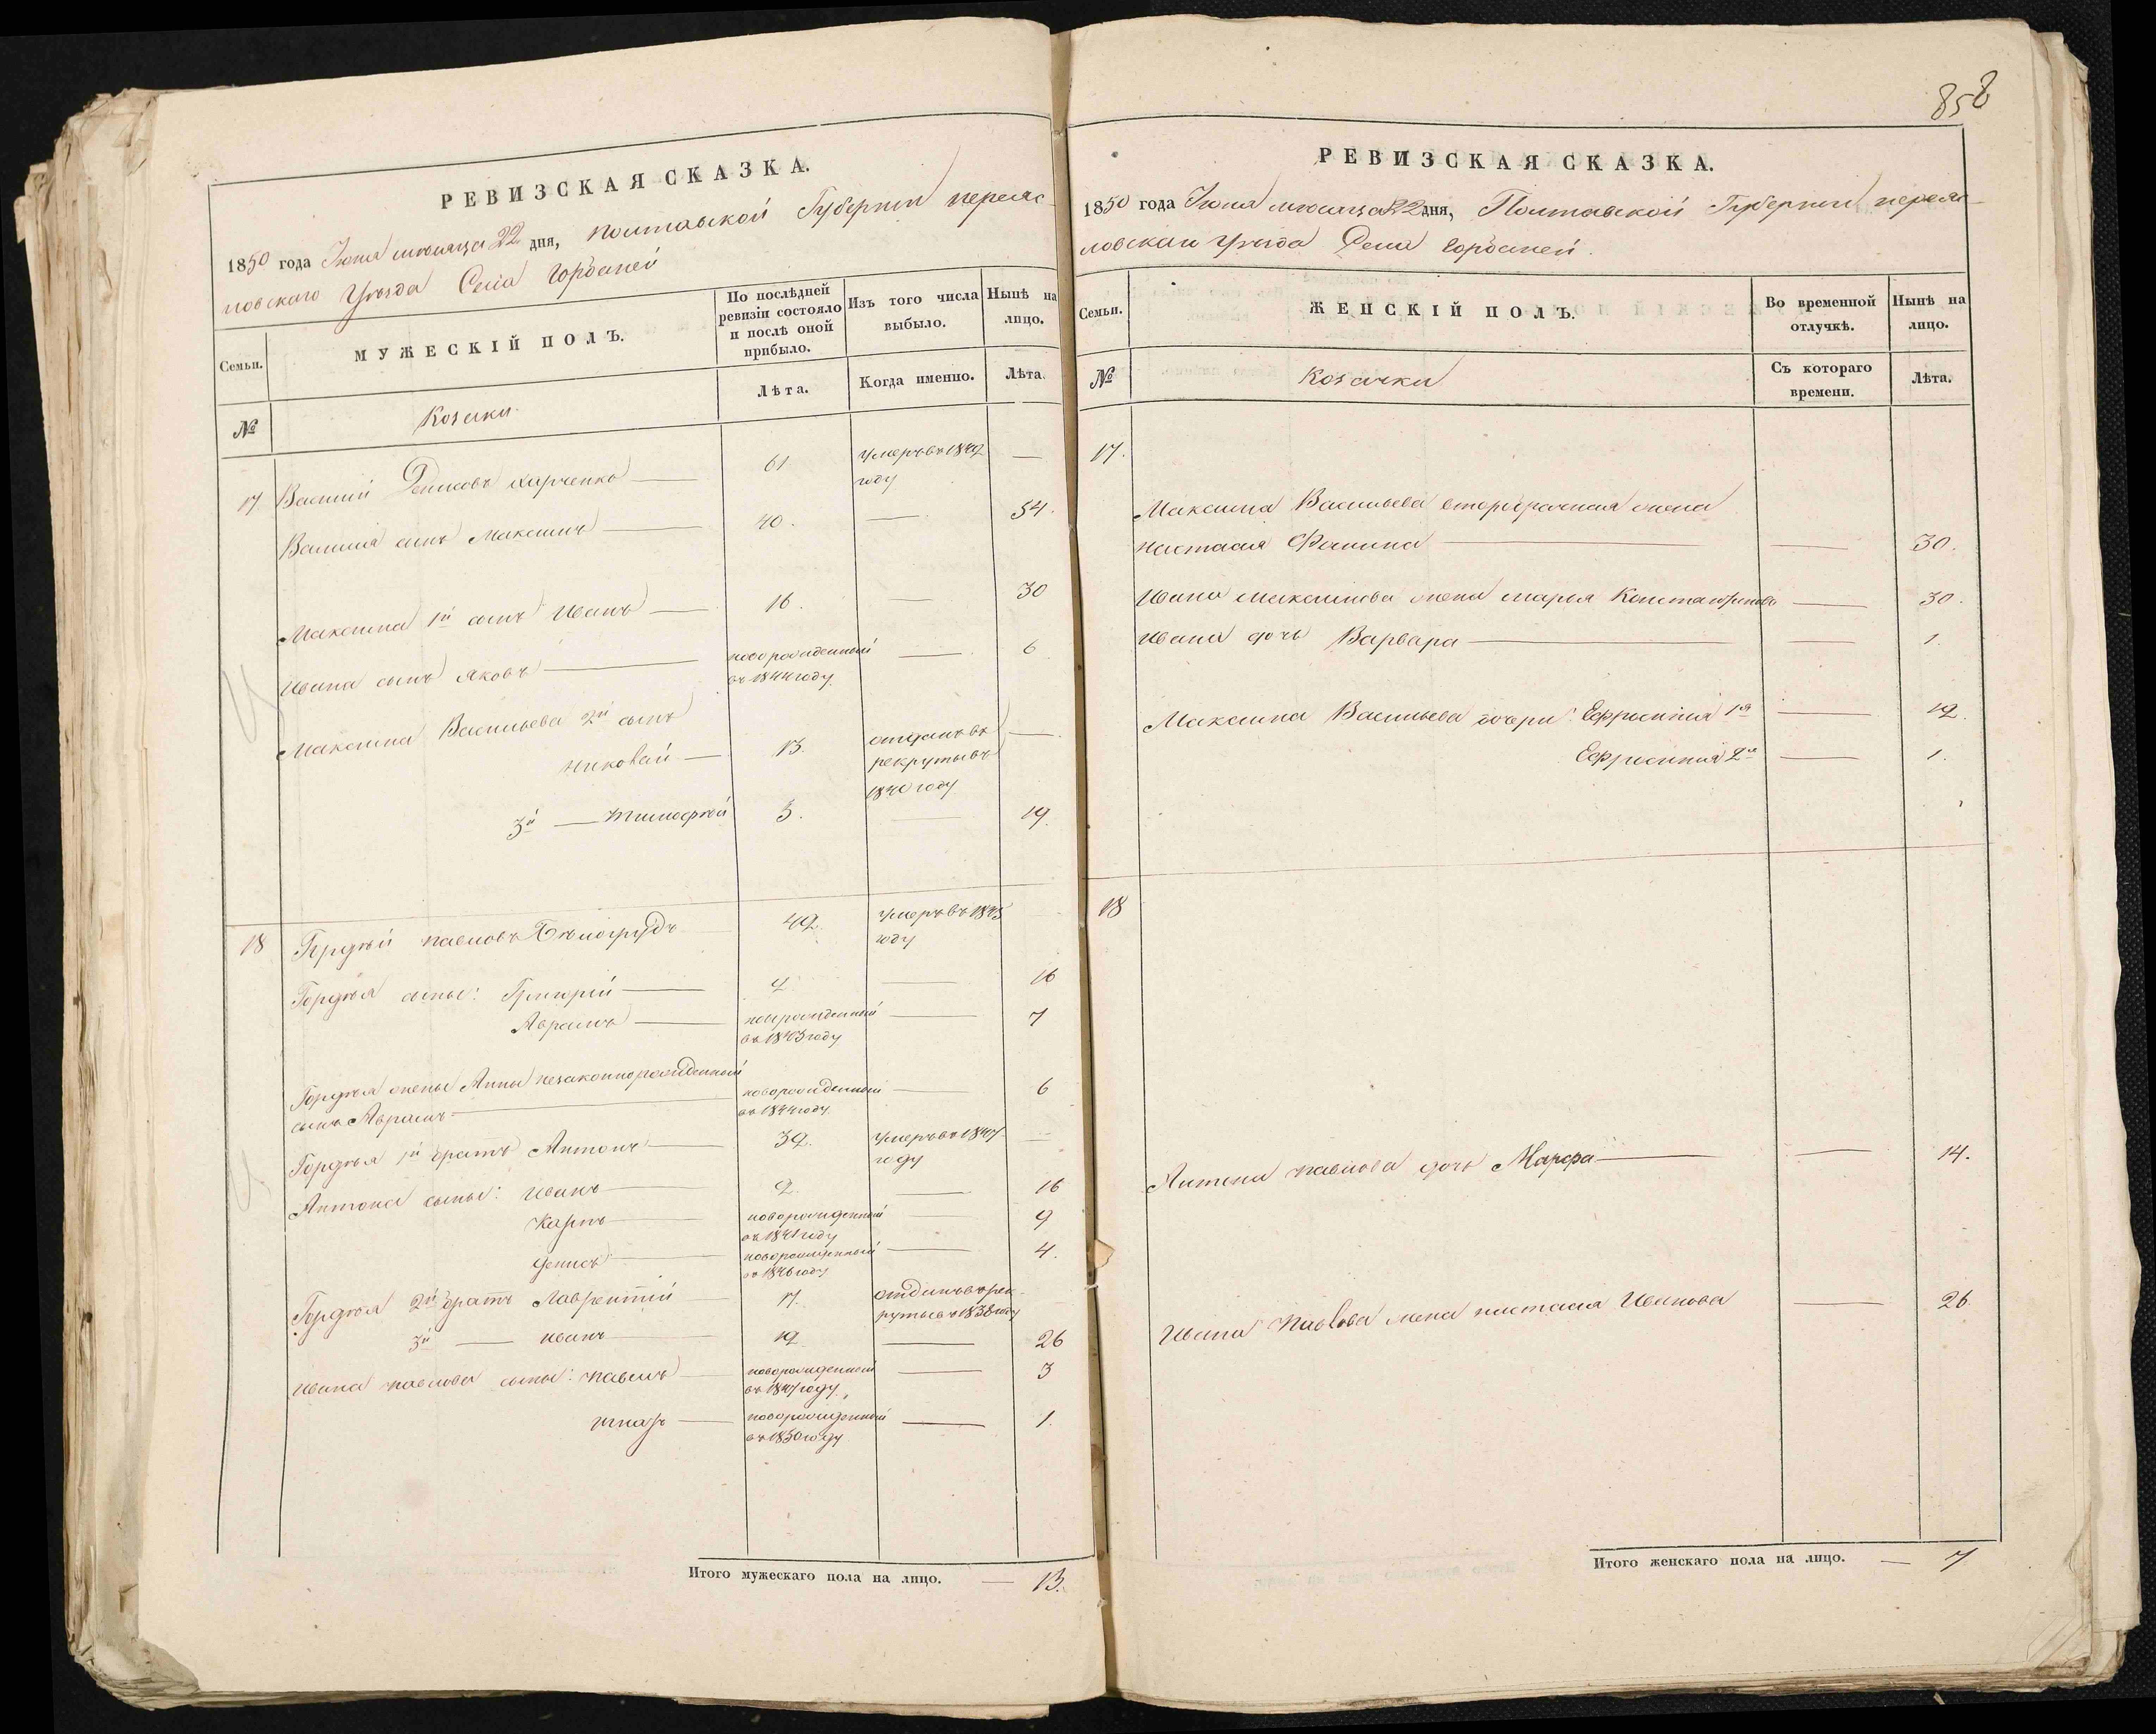 858
РЕВИЗСКАЯ СКАЗКА.
1850 года Іюня мѣсяца 22 дня, Полтавской Губерніи переяс-
ловскаго Уѣзда Села Горбаней
Семьи.
МУЖЕСКІЙ ПОЛЪ.
По послѣдней ревизіи состояло и послѣ оной прибыло.
Изъ того числа выбыло.
Нынѣ на лицо.
№
Козаки
Лѣта.
Когда именно.
Лѣта.
17 Василій Денисовъ Харченко 61 умеръ въ 1849 году —
Василія сынъ Максимъ 40. — 54.
Максима 1й сынъ Иванъ 16. — 30
Ивана сынъ Яковъ новорожденный въ 1844 году — 6
Максима Васильева 2й сынъ
Николай — 13. отданъ въ рекруты въ 1840 году —
3й — Тимофѣй 5. — 19.
18 Гордѣй Павловъ Бѣлогрудъ 42 умеръ въ 1845 году
Гордѣя сыны: Григорій 2 — 16
Аврамъ новорожденный въ 1843 году — 7
Гордѣя жены Анны незаконнорожденный
сынъ Аврамъ новорожденный въ 1844 году — 6
Гордѣя 1й братъ Антонъ 32. умеръ въ 1847 году —
Антона сыны: Иванъ 2. — 16
Карпъ новорожденный въ 1841 году — 9
Денисъ новорожденный въ 1846 году — 4.
Гордѣя 2й братъ Лаврентій 17. отданъ въ рекруты въ 1838 году
3й — Иванъ 12 — 26
Ивана Павлова сыны: Павелъ новорожденный въ 1847 году — 3
новорожденный въ 1850 году — 1.
Итого мужескаго пола на лицо. — 13.
РЕВИЗСКАЯ СКАЗКА.
1850 года Іюня мѣсяца 22 дня, Полтавской Губерніи переяс-
ловскаго Уѣзда Села Горбаней.
Семьи.
ЖЕНСКІЙ ПОЛЪ.
Во временной отлучкѣ.
Нынѣ на лицо.
№
Козачки
Съ котораго времени.
Лѣта.
17.
Максима Васильева второбрачная жена
Настасія Фомина — 30.
Ивана Максимова жена Марья Константинова — 30.
Ивана дочь Варвара — 1.
Максима Васильева дочери: Ефросинія 1я — 12.
Ефросинія 2я — 1.
18
Антона Павлова дочь Марфа — 14.
Ивана Павлова жена Настасія Иванова — 26
Итого женскаго пола на лицо. — 7